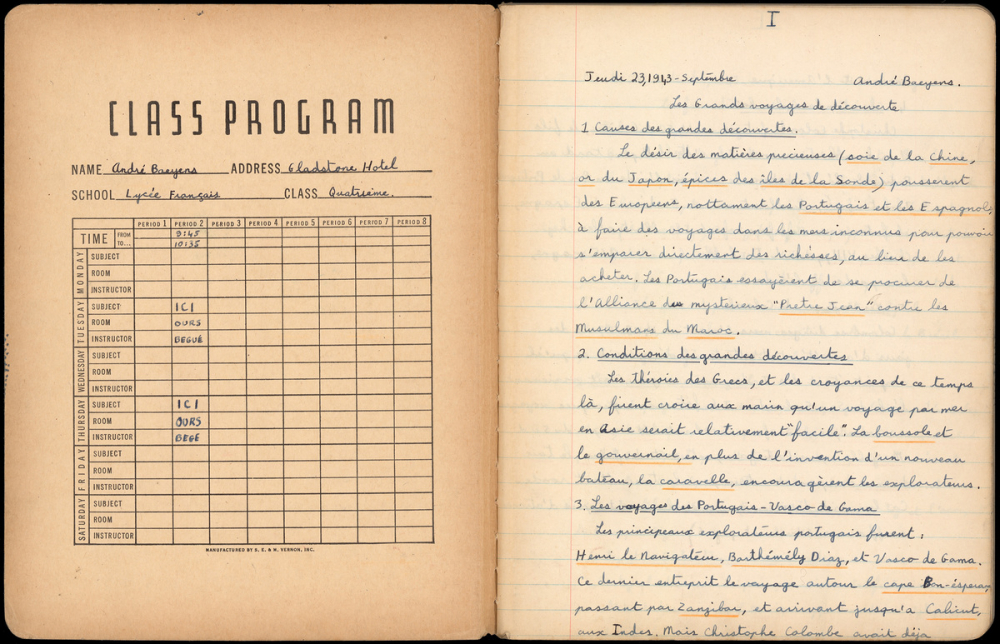 CLASS PROGRAM
NAME André Baeyens ADDRESS Gladstone Hotel
SCHOOL Lycée Français CLASS Quatrième.
PERIOD 1 PERIOD 2 PERIOD 3 PERIOD 4 PERIOD 5 PERIOD 6 PERIOD 7 PERIOD 8
TIME FROM 9:45
TO... 10:35
MONDAY
SUBJECT
ROOM
INSTRUCTOR
TUESDAY
SUBJECT ICI
ROOM OURS
INSTRUCTOR BEGUÉ
WEDNESDAY
SUBJECT
ROOM
INSTRUCTOR
THURSDAY
SUBJECT ICI
ROOM OURS
INSTRUCTOR BEGÉ
FRIDAY
SUBJECT
ROOM
INSTRUCTOR
SATURDAY
SUBJECT
ROOM
INSTRUCTOR
MANUFACTURED BY S. E. & M. VERNON, INC.
I
Jeudi 23, 1943 - Septembre André Baeyens.
Les Grands voyages de découverte
1 Causes des grandes découvertes.
Le désir des matières precieuses (soie de la Chine,
or du Japon, épices des îles de la Sonde) pousserent
des Europeens, nottament les Portugais et les Espagnols,
à faire des voyages dans les mers inconnus pour pouvoir
s'emparer directement des richésses, au lieu de les
acheter. Les Portugais essayèrent de se procurer de
l'Alliance des mysterieux "Pretre Jean" contre les
Musulmans du Maroc.
2. Conditions des grandes découvertes
Les théroies des Grecs, et les croyances de ce temps
là, firent croire aux marin qu'un voyage par mer
en Asie serait relativement "facile". La boussole et
le gouvernail, en plus de l'invention d'un nouveau
bateau, la caravelle, encouragèrent les explorateurs.
3. Les voyages des Portugais - Vasco de Gama
Les principeaux explorateurs portugais fusent :
Henri le Navigateur, Barthémély Diaz, et Vasco de Gama.
Ce dernier entreprit le voyage autour le cape Bon-ésperan
passant par Zanjibar, et arrivant jusqu'a Calicut,
aux Indes. Mais Christophe Colombe avait déja